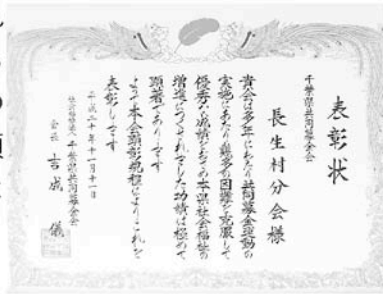 表彰状
千葉県共同募金会
長生村分会様
貴会は多年にわたり共同募金運動の
実施にあたり幾多の困難を克服して
優秀な成績をおさめ本県社会福祉の
増進につくされました功績は極めて
顕著であります
よって本会顕彰規程によりこれを
表彰します
平成二十年十一月十一日
社会福祉法人 千葉県共同募金会
会長 吉成 儀